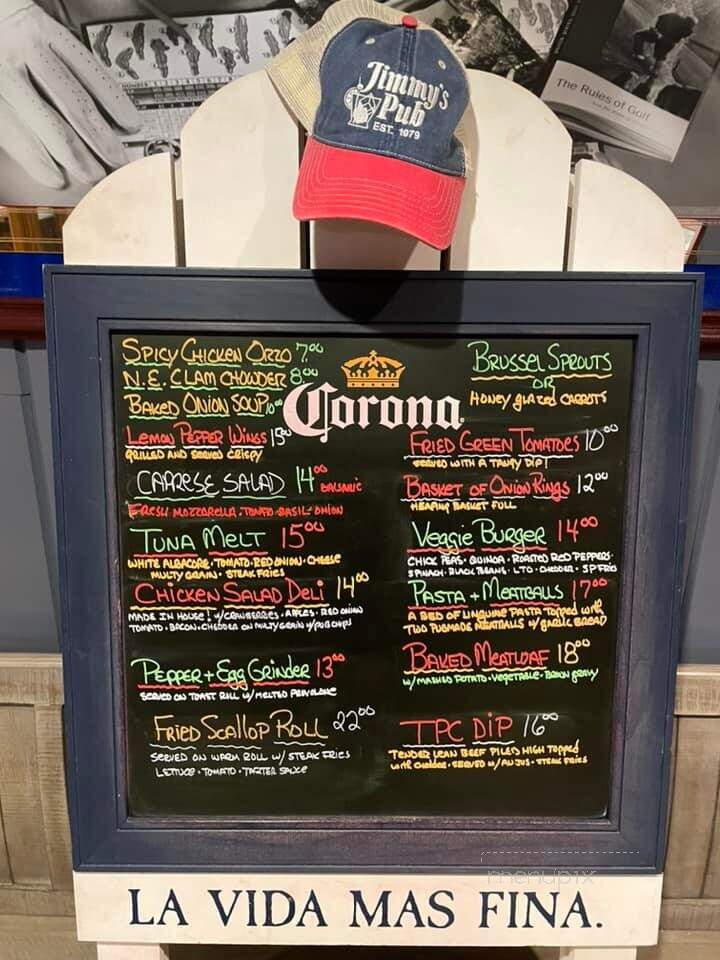 The Rules of Golf
Jimmy's
Pub
EST. 1979
SPICY CHICKEN ORZO 7.00
N.E. CLAM CHOWDER 8.00
BAKED ONION SOUP 10.00
LEMON PEPPER WINGS 15.00
GRILLED AND SERVED CRISPY
CAPRESE SALAD 14.00 BALSAMIC
FRESH MOZZARELLA · TOMATO · BASIL · ONION
TUNA MELT 15.00
WHITE ALBACORE · TOMATO · RED ONION · CHEESE
MULTY GRAIN · STEAK FRIES
CHICKEN SALAD DELI 14.00
MADE IN HOUSE! W/CRANBERRIES · APPLES · RED ONION
TOMATO · BACON · CHEDDER ON MULTY GRAIN W/POT CHIPS
PEPPER + Egg GRINDER 13.00
SERVED ON TOAST ROLL W/ MELTED PROVOLONE
FRIED SCALLOP ROLL 22.00
SERVED ON WARM ROLL W/ STEAK FRIES
LETTUCE · TOMATO · TARTER SAUCE
Corona
BRUSSEL SPROUTS
OR
HONEY glazed CARROTS
FRIED GREEN TOMATOES 10.00
SERVED WITH A TANGY DIP!
BASKET OF ONION RINGS 12.00
HEAPING BASKET FULL
Veggie BURGER 14.00
CHICK PEAS · QUINOA · ROASTED RED PEPPERS
SPINACH · BLACK BEANS · LTO · CHEDDER · SP FRIES
PASTA + MEATBALLS 17.00
A BED OF LINGUINE PASTA TOPPED WITH
TWO MEATBALLS W/ GARLIC BREAD
BAKED MEATLOAF 18.00
W/ MASHED POTATO · VEGETABLE · BROWN GRAVY
TPC DIP 16.00
TENDER LEAN BEEF PILED HIGH TOPPED
WITH CHEDDER · SERVED W/ AU JUS · STEAK FRIES
menupix
LA VIDA MAS FINA.